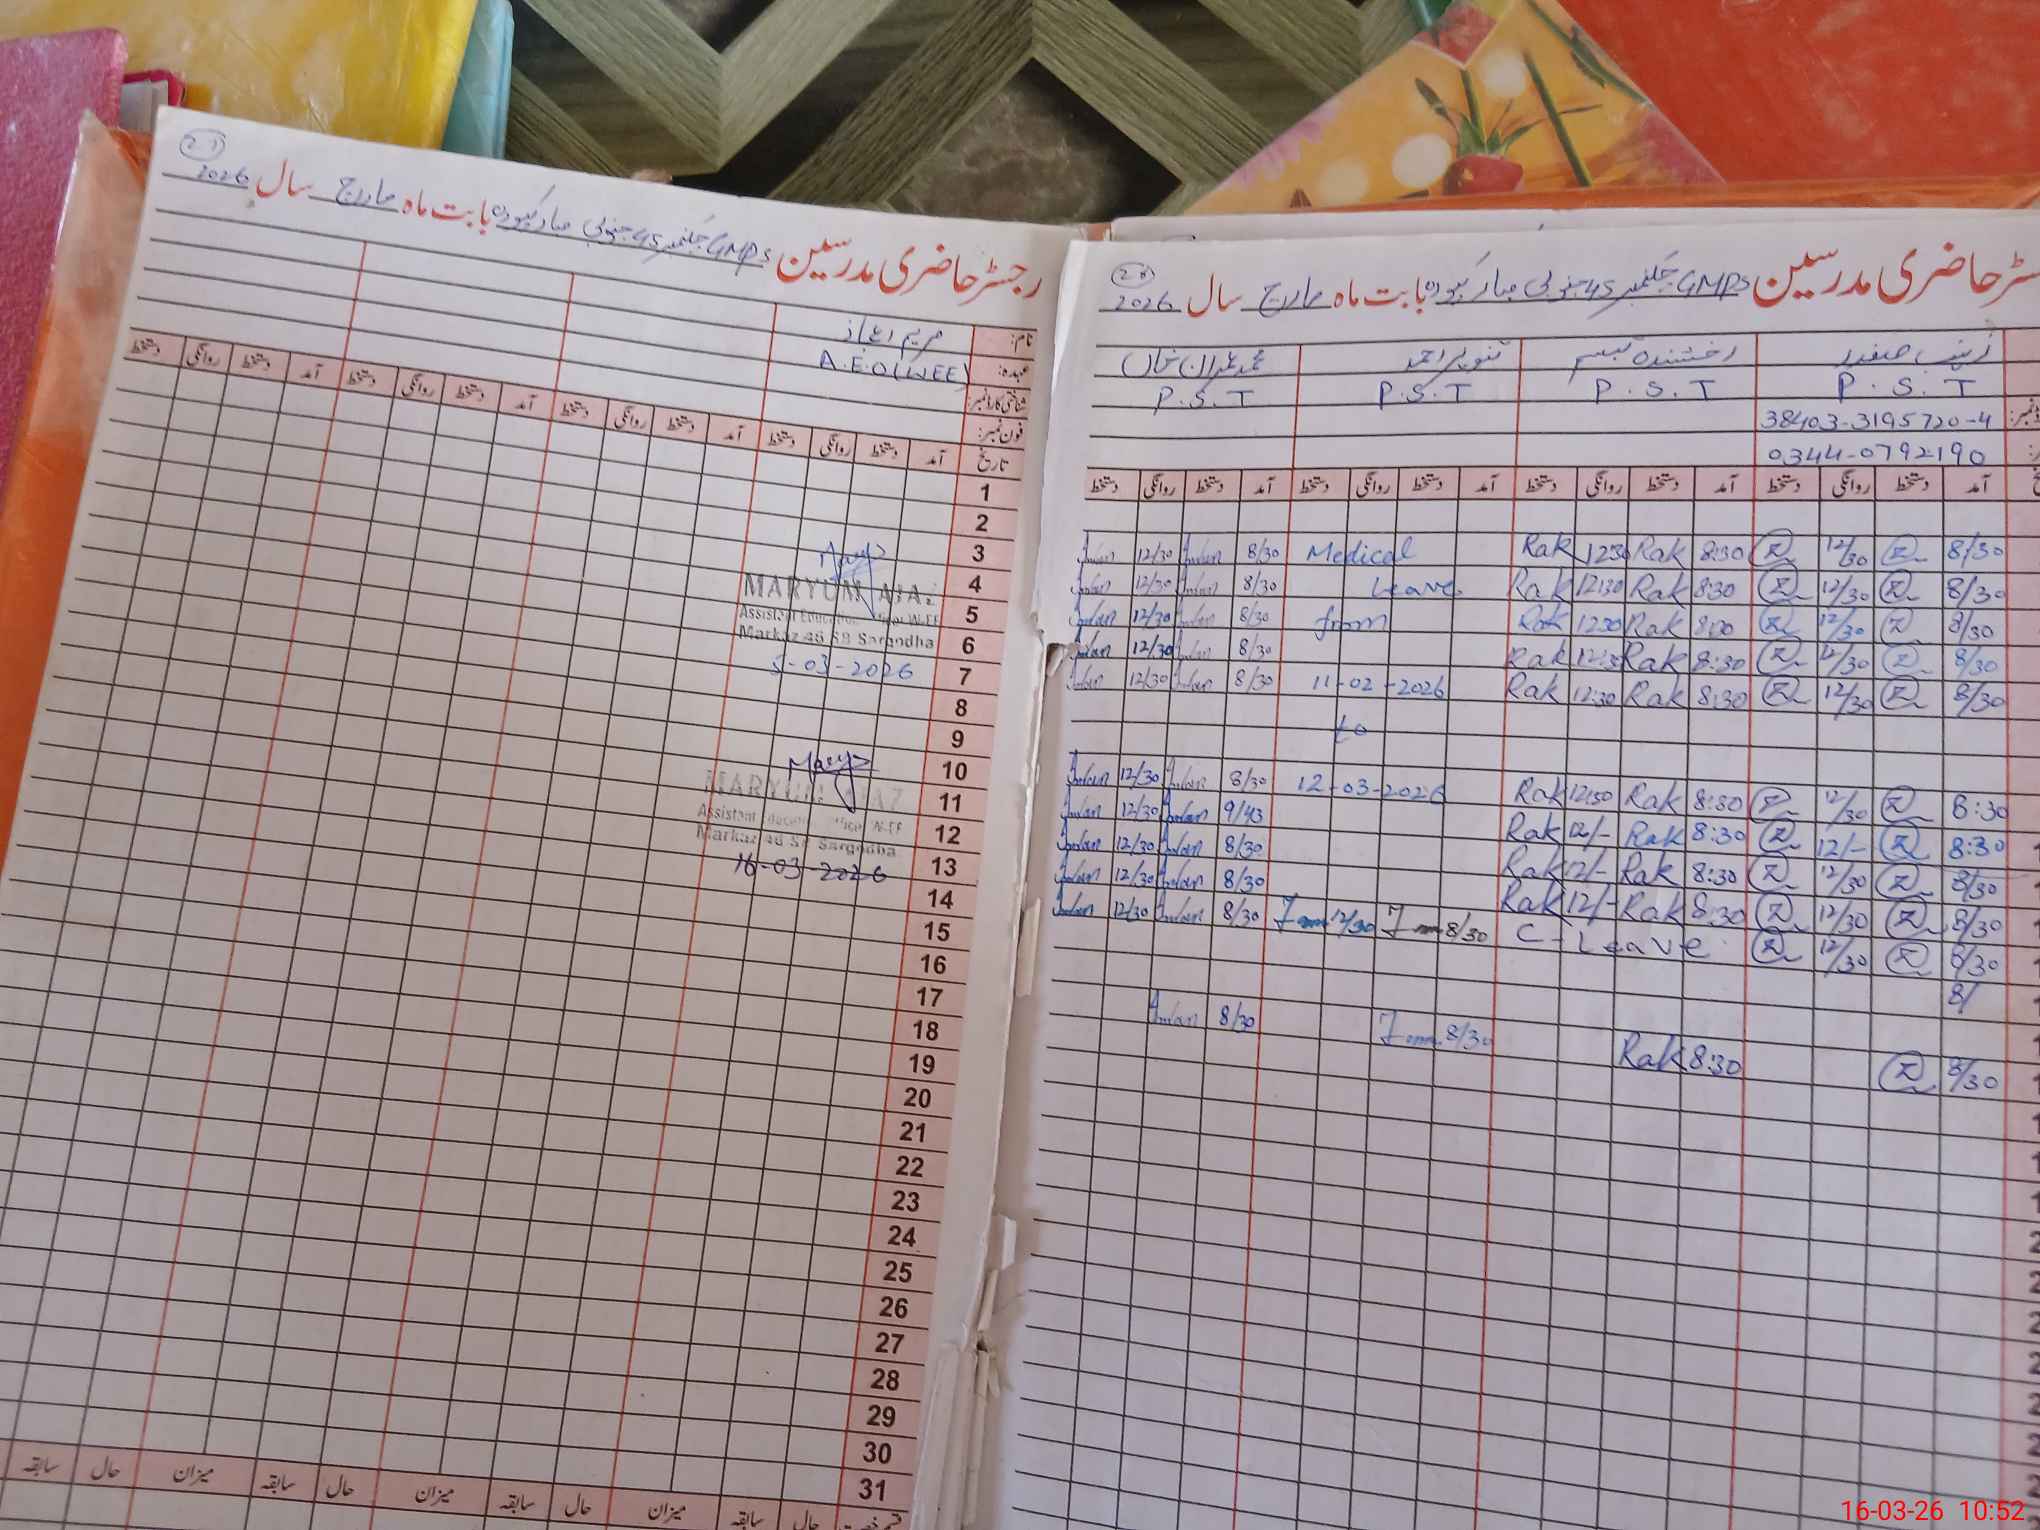 رجسٹر حاضری مدرسین GMPS چکنمبر 45 جنوبی مبارکپورہ بابت ماہ مارچ سال 2026
نام: مریم اعجاز
عہدہ: A.E.O(WEE)
شناختی کارڈ نمبر:
فون نمبر:
تاریخ آمد دستخط روانگی دستخط آمد دستخط روانگی دستخط آمد دستخط روانگی دستخط آمد دستخط روانگی دستخط
1
2
3
4
5
6
7
8
9
10
11
12
13
14
15
16
17
18
19
20
21
22
23
24
25
26
27
28
29
30
31
MARYUM AJAZ
Assistant Education Officer W-EE
Markaz 46 SB Sargodha
5-03-2026
MARYUM AJAZ
Assistant Education Officer W-EE
Markaz 46 SB Sargodha
16-03-2026
حال سابقہ میزان حال سابقہ میزان حال سابقہ میزان حال سابقہ
28
سٹر حاضری مدرسین GMPS چکنمبر 45 جنوبی مبارکپورہ بابت ماہ مارچ سال 2026
زینب صفدر رخشندہ تبسم تنویر احمد محمد عمران خان
P.S.T P.S.T P.S.T P.S.T
38403-3195720-4
0344-0792190
آمد دستخط روانگی دستخط آمد دستخط روانگی دستخط آمد دستخط روانگی دستخط آمد دستخط روانگی دستخط
Imran 12/30 Imran 8/30 Medical Rak 12:30 Rak 8:30 12/30 8/30
Imran 12/30 Imran 8/30 Leave Rak 12:30 Rak 8:30 12/30 8/30
Imran 12/30 Imran 8/30 from Rak 12:30 Rak 12/30 8/30
Imran 12/30 Imran 8/30 Rak Rak 8:30 12/30 8/30
Imran 12/30 Imran 8/30 11-02-2026 Rak 12:30 Rak 8:30 12/30 8/30
to
Imran 12/30 Imran 8/30 12-03-2026 Rak 12:30 Rak 8:30 12/30 8:30
Imran 12/30 Imran 9/43 Rak 12/- Rak 8:30 12/- 8:30
Imran 12/30 Imran 8/30 Rak 12/- Rak 8:30 12/30 8/30
Imran 12/30 Imran 8/30 Rak 12/- Rak 8:30 12/30 8/30
Imran 12/30 Imran 8/30 12/30 8/30 C-Leave 12/30 8/30
8/
Imran 8/30 8/30 Rak 8:30 8/30
16-03-26 10:52